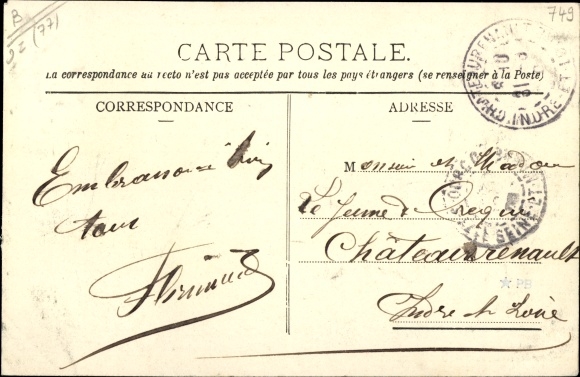 B
(77)
749
CARTE POSTALE.
La correspondance au recto n'est pas acceptée par tous les pays étrangers (se renseigner à la Poste)
CORRESPONDANCE
ADRESSE
tous
Monsieur et Madame
Le Jeune
Châteaurenault
Indre et Loire
CHATEAURENAULT
INDRE ET L
SEINE ET
PB